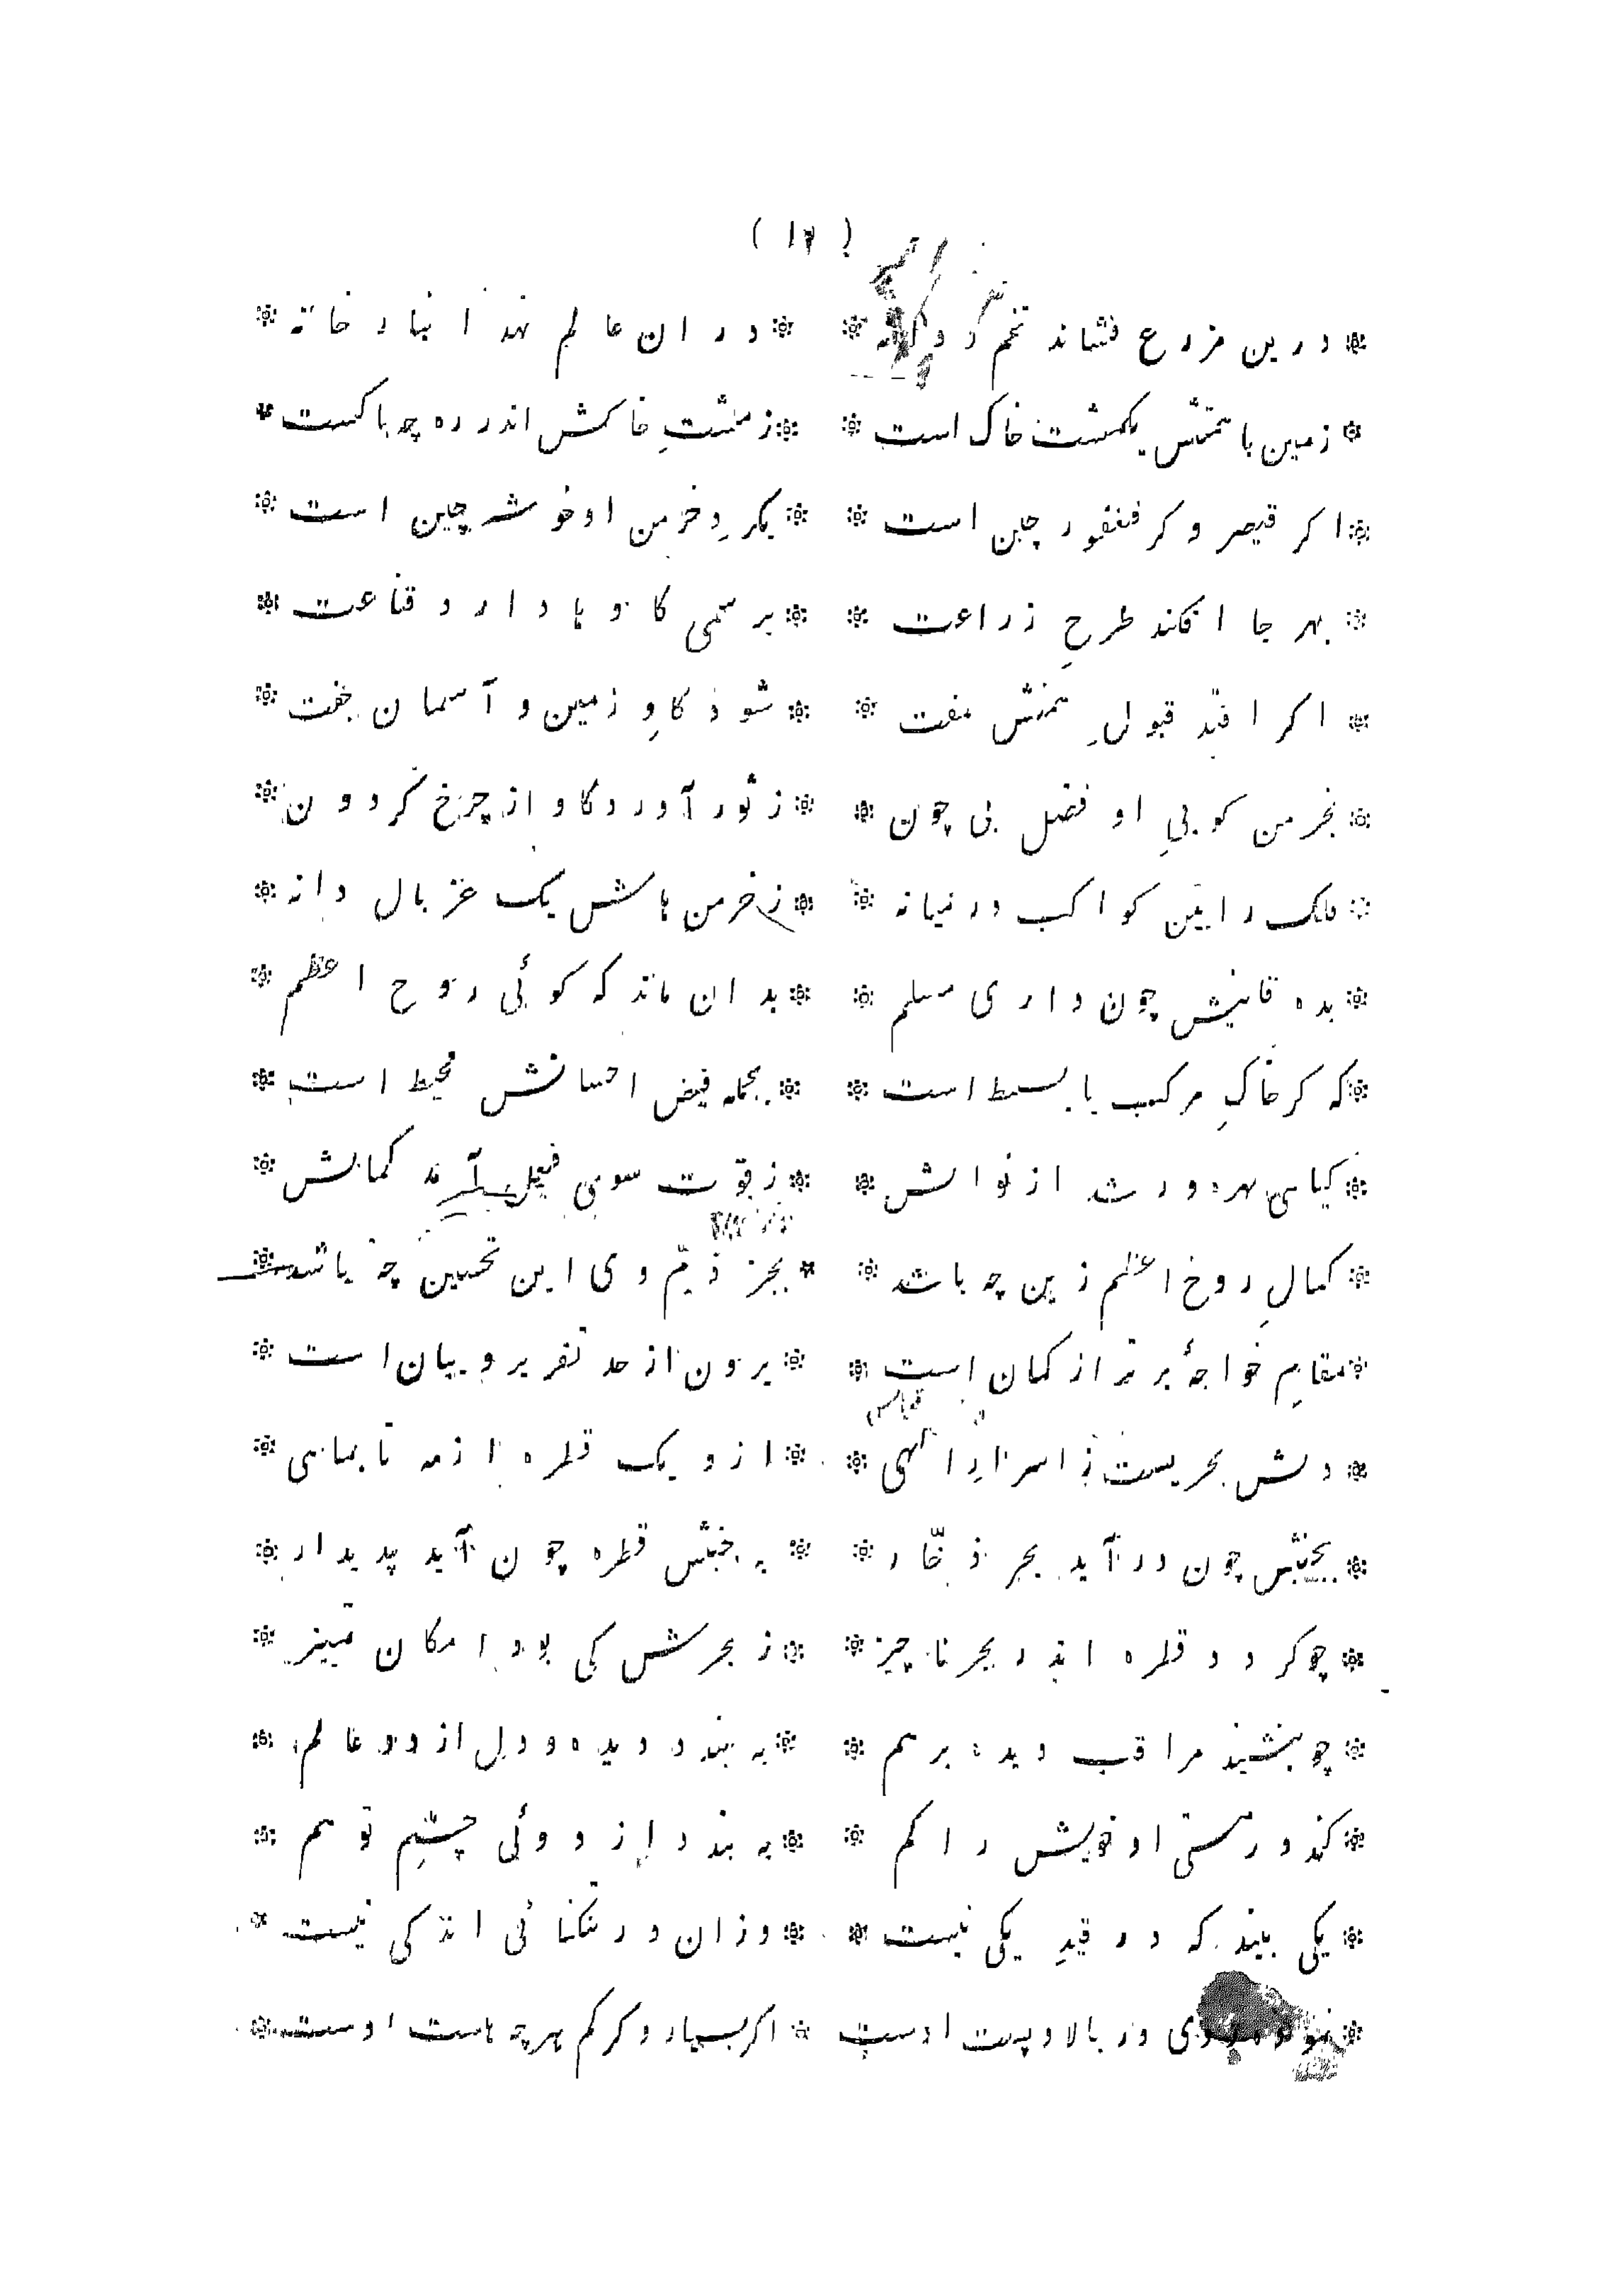 ( ۱۷ )
* درین مزرع فشاند تخم و دانه * * در ان عالم نهد انبار خانه *
* زمین با همتش یکمشت خاک است * * ز مشتِ خاکش اندر ره چه باکست *
* اکر قیصر و کر فغفور چین است * * بکردِ خرمن او خوشه چین است *
* بهر جا افکند طرحِ زراعت * * بر سمی کا و ها دارد قناعت *
* اکر افتد قبولِ همتش مفت * * شود کاوِ زمین و آسمان جفت *
* بخرمن کوبیِ او فضل بی چون * * ز ثور آورد کاو از چرخ کردون *
* ملک را این کواکب در نیانه * * ز خرمن هاش یک غربال دانه *
* بده قانیش چون داری مسلم * * بد ان ماند که کوئی روح اعظم *
* که کر خاکِ مرکب یا بسیط است * * بجمله فیض احسانش محیط است *
* کیاهی بهره ور شد از نوالش * * ز قوّت سوی فعل آمد کمالش *
* کمالِ روح اعظم زین چه باشد * * بجز ذمّ وی این تحسین چه باشد *
* مقامِ خواجهٔ برتر از کمان است * * برون از حد تقریر و بیان است *
قیاس
* دلش بحریست ز اسرارِ الهی * * از و یک قطره از مه تا بماهی *
* بجنبش چون در آید بحر ذخّار * * به جنبش قطره چون آید پدیدار *
* چو کردد قطره اندر بحر ناچیز * * ز بحرش کی بود امکان تمییز *
* چو بنشیند مراقب دیده برهم * * به بندد دیده و دل از دو عالم *
* کند در هستی او خویش را کم * * به بندد از دوئی چشمِ توهم *
* یکی بیند که در قیدِ یکی نیست * * وزان در تنکنائی اندکی نیست *
* وی در بالا و پست اوست * اکر بسیار و کر کم هرچه هست اوست *